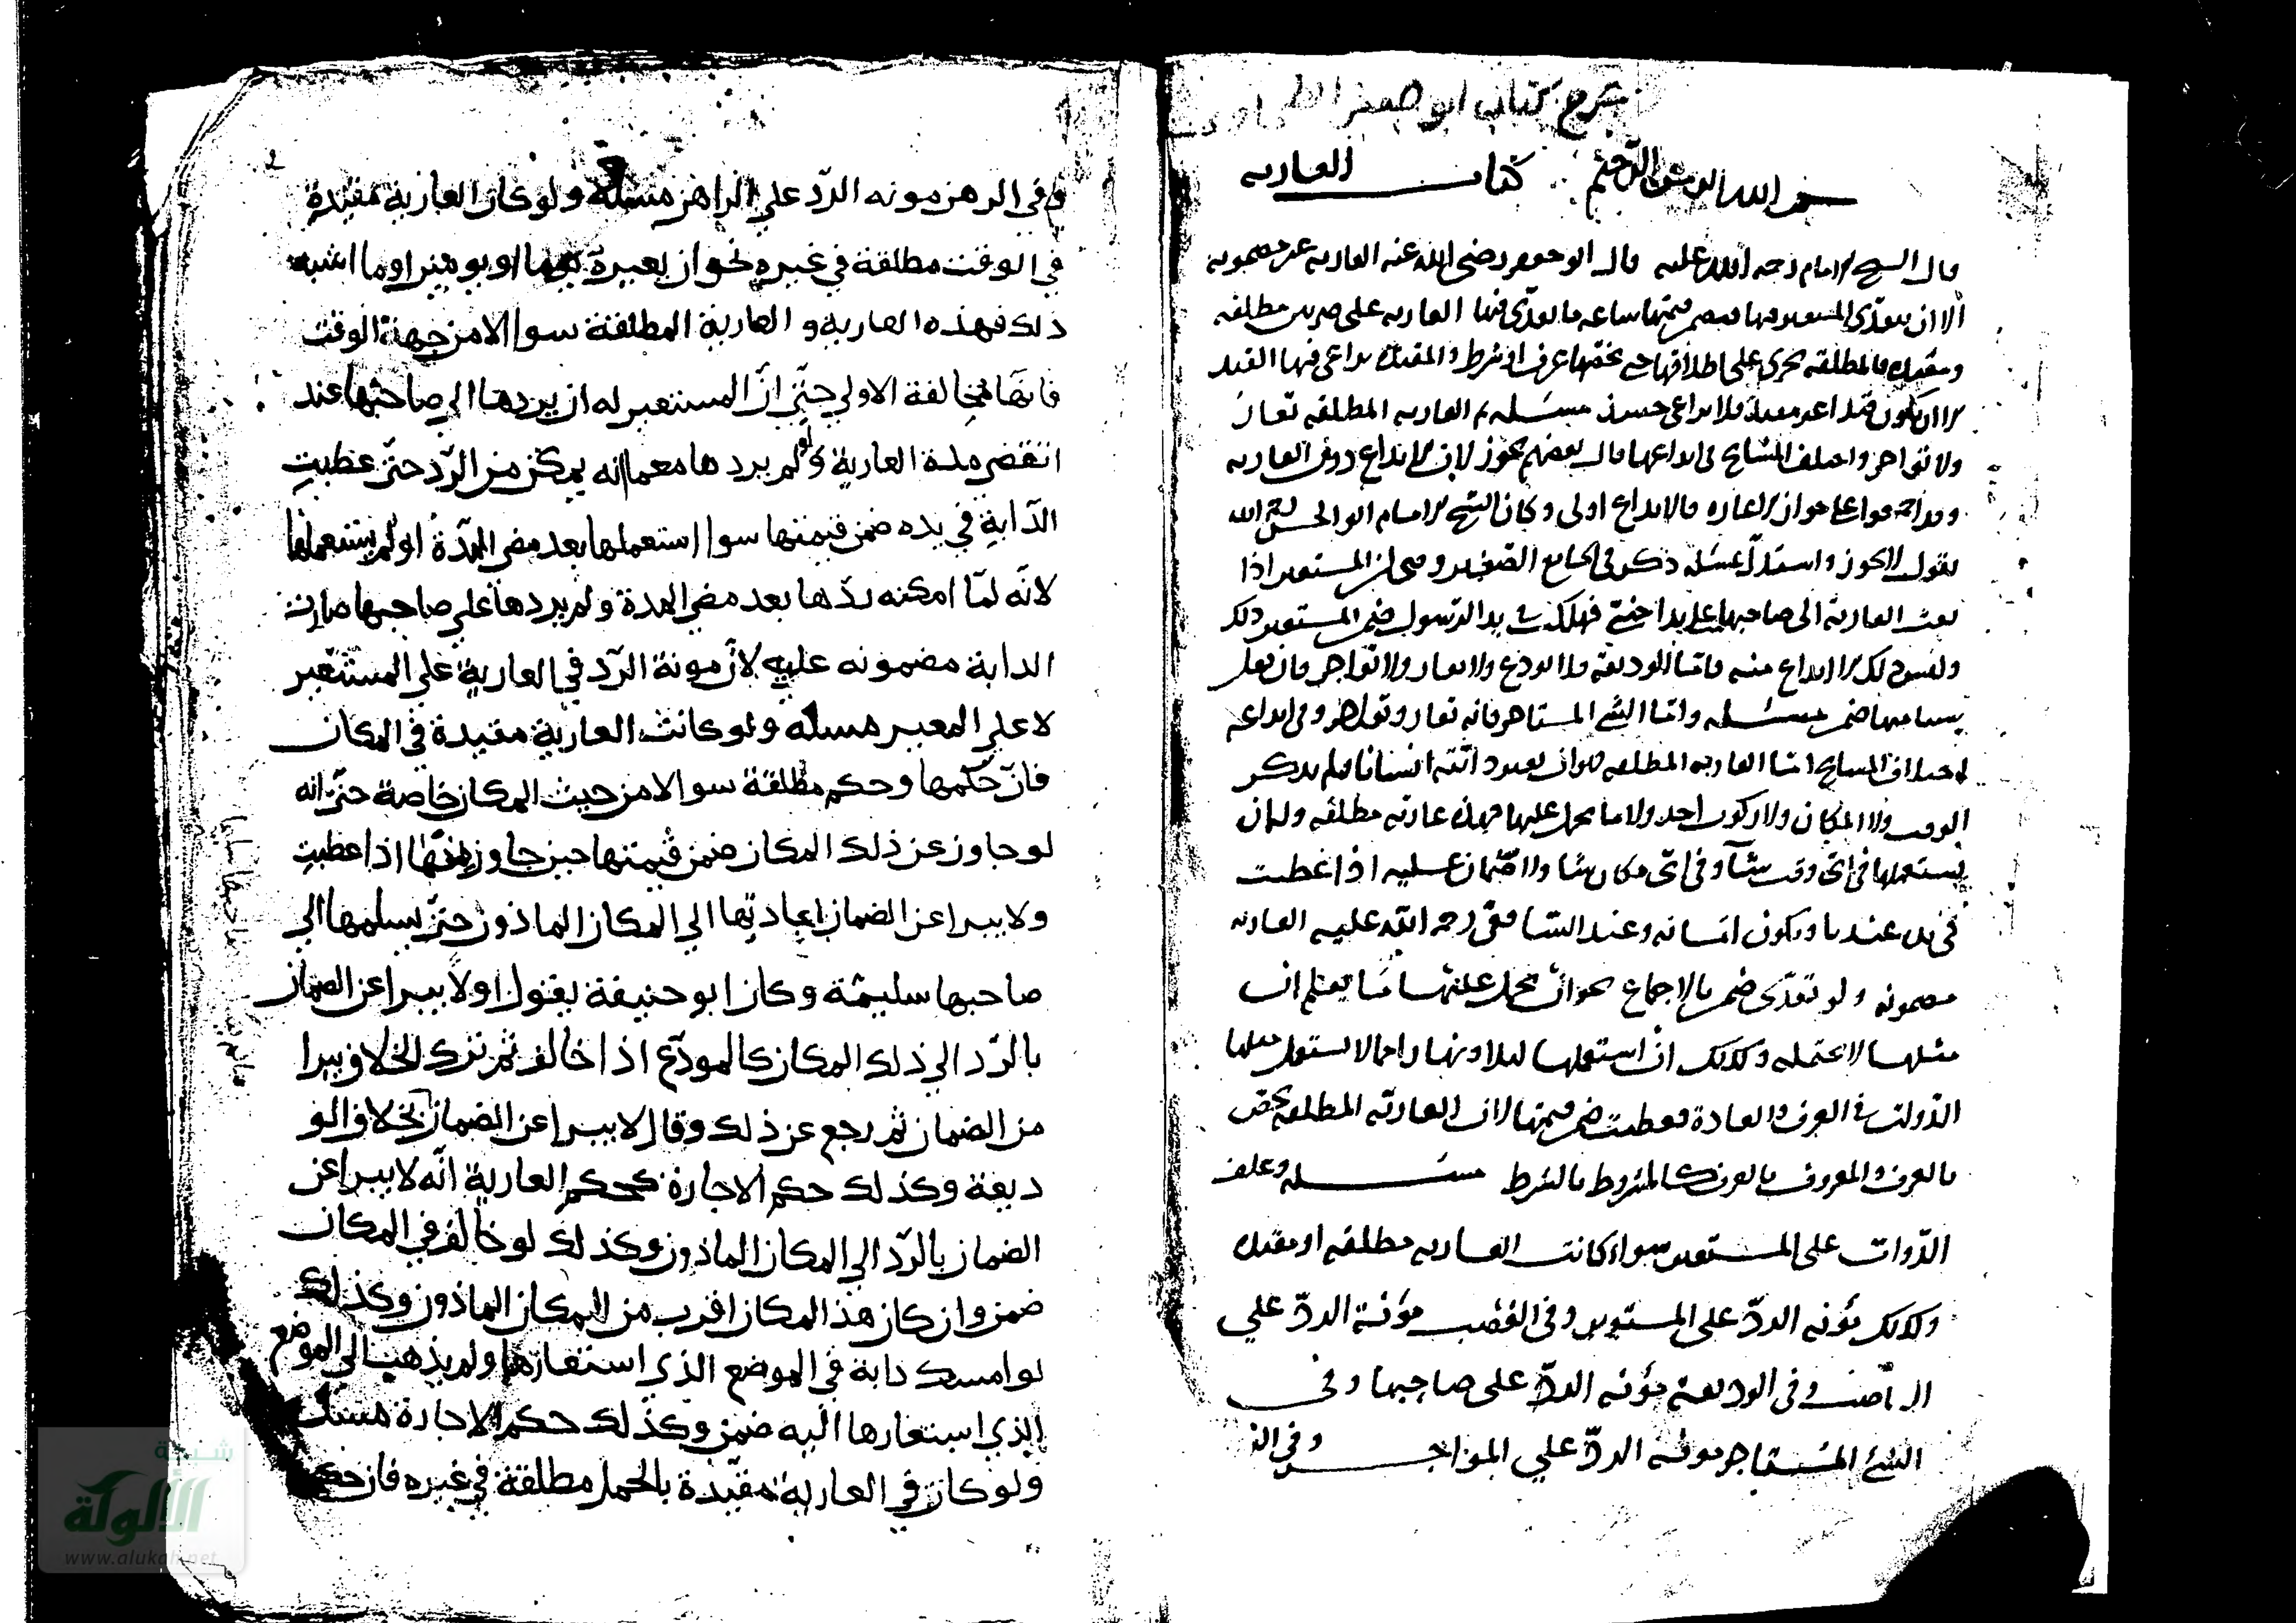 شرح كتاب ابو جعفر الطحاوي
بسم الله الرحمن الرحيم كتاب العاريه
قال الشيخ الامام رحمه الله عليه قال ابو جعفر رضى الله عنه العاريه غير مضمونه
الا ان يتعدى المستعير فيها فيضمن قيمتها ساعه ما تعدى فيها العاريه على ضربين مطلقه
ومقيده فالمطلقه تجرى على اطلاقها حتى يخصها عرف او شرط والمقيده يراعى فيها القيد
الا ان يكون قيدا غير مفيد فلا يراعى حينئذ مسئله ثم العاريه المطلقه تعار
ولا تواجر واختلف المشايخ فى ايداعها قال بعضهم يجوز لان الايداع دون العاريه
وقد اجمعوا على جواز الاعاره فالايداع اولى وكان الشيخ الامام ابو الحسن رحمه الله
يقول لا يجوز واستدل بمسئله ذكر فى الجامع الصغير وهى ان المستعير اذا
بعث العارية الى صاحبها على يد اجنبى فهلكت فى يد الرسول ضمن المستعير ذلك
وليس ذلك الا ايداع منه فاما الوديعه فلا تودع ولا تعار ولا تواجر فان فعل
شيئا منها ضمن مسئله واما الشئ المستاجر فانه تعار وتواجر وفى ايداعه
اختلاف المشايخ اما العاريه المطلقه هو ان يعير دابته انسانا فلم يذكر
الوقت ولا المكان ولا ركوب احد ولا ما يحمل عليها فهذه عاريه مطلقه وله ان
يستعملها فى اى وقت شآ وفى اى مكان شا ولا ضمان عليه اذا عطبت
فى يده عندنا ويكون امانه وعند الشافعى رحمه الله عليه العاريه
مضمونه ولو تعدى ضمن بالاجماع نحو ان يحمل عليها ما يعلم ان
مثلها لا تحتمله وكذلك ان استعملها ليلا ونهارا مما لا يستعمل مثلها
الدواب فى العرف والعادة فعطبت ضمن قيمتها لان العاريه المطلقه تختص
بالعرف والمعروف بالعرف كالمشروط بالشرط مسئله وعلف
الدواب على المستعير سواء كانت العاريه مطلقه او مقيده
وكذلك مؤنه الردّ على المستعير وفى الغصب مؤنة الردّ على
الغاصب وفى الوديعه مؤنه الردّ على صاحبها وفى
الشئ المستاجر مونه الردّ على المواجر وفى الر
وفي الرهن مونه الردّ علي الراهن مسئله ولو كان العارية مقيدة
في الوقت مطلقة في غيره نحو ان يعيره يوما او يومين او ما اشبه
ذلك فهذه العارية و العارية المطلقة سوا الا من جهة الوقت
فانها مخالفة الاولي حتّي انّ المستعير له ان يردها الي صاحبها عند
انقضي مدة العارية ولو لم يردها مع ما انه يمكن من الردّ حتي عطبت
الدّابة في يده ضمن قيمتها سوا استعملها بعد مضي المدّة او لم يستعملها
لانّه لمّا امكنه ردّها بعد مضي المدة ولم يردها علي صاحبها صارت
الدابة مضمونه عليه لان مونة الردّ في العارية علي المستعير
لا علي المعير مسئله ولو كانت العارية مقيدة في المكان
فان حكمها وحكم مطلقة سوا الا من حيث المكان خاصة حتّي انه
لو جاوز عن ذلك المكان ضمن قيمتها حين جاوزنها اذا عطبت
ولا يبرا عن الضمان باعادتها الي المكان الماذون حتّي يسلمها الي
صاحبها سليمة وكان ابو حنيفة يقول اولا يبرا عن الضمان
بالرّد الي ذلك المكان كالمودّع اذا خالف ثم ترك الخلاف يبرا
من الضمان ثم رجع عن ذلك وقال لا يبرا عن الضمان بخلاف الو
ديعة وكذلك حكم الاجارة كحكم العارية انّه لا يبرا عن
الضمان بالرّد الي المكان الماذون وكذلك لو خالف في المكان
ضمن وان كان هذا المكان اقرب من المكان الماذون وكذلك
لو امسك دابة في الموضع الذي استعارها ولم يذهب الي الموضع
الذي استعارها اليه ضمن وكذلك حكم الاجارة مسئله
ولو كان في العارية مقيّدة بالحمل مطلقة في غيره فان حكم
شبكة
الألوكة
www.alukah.net